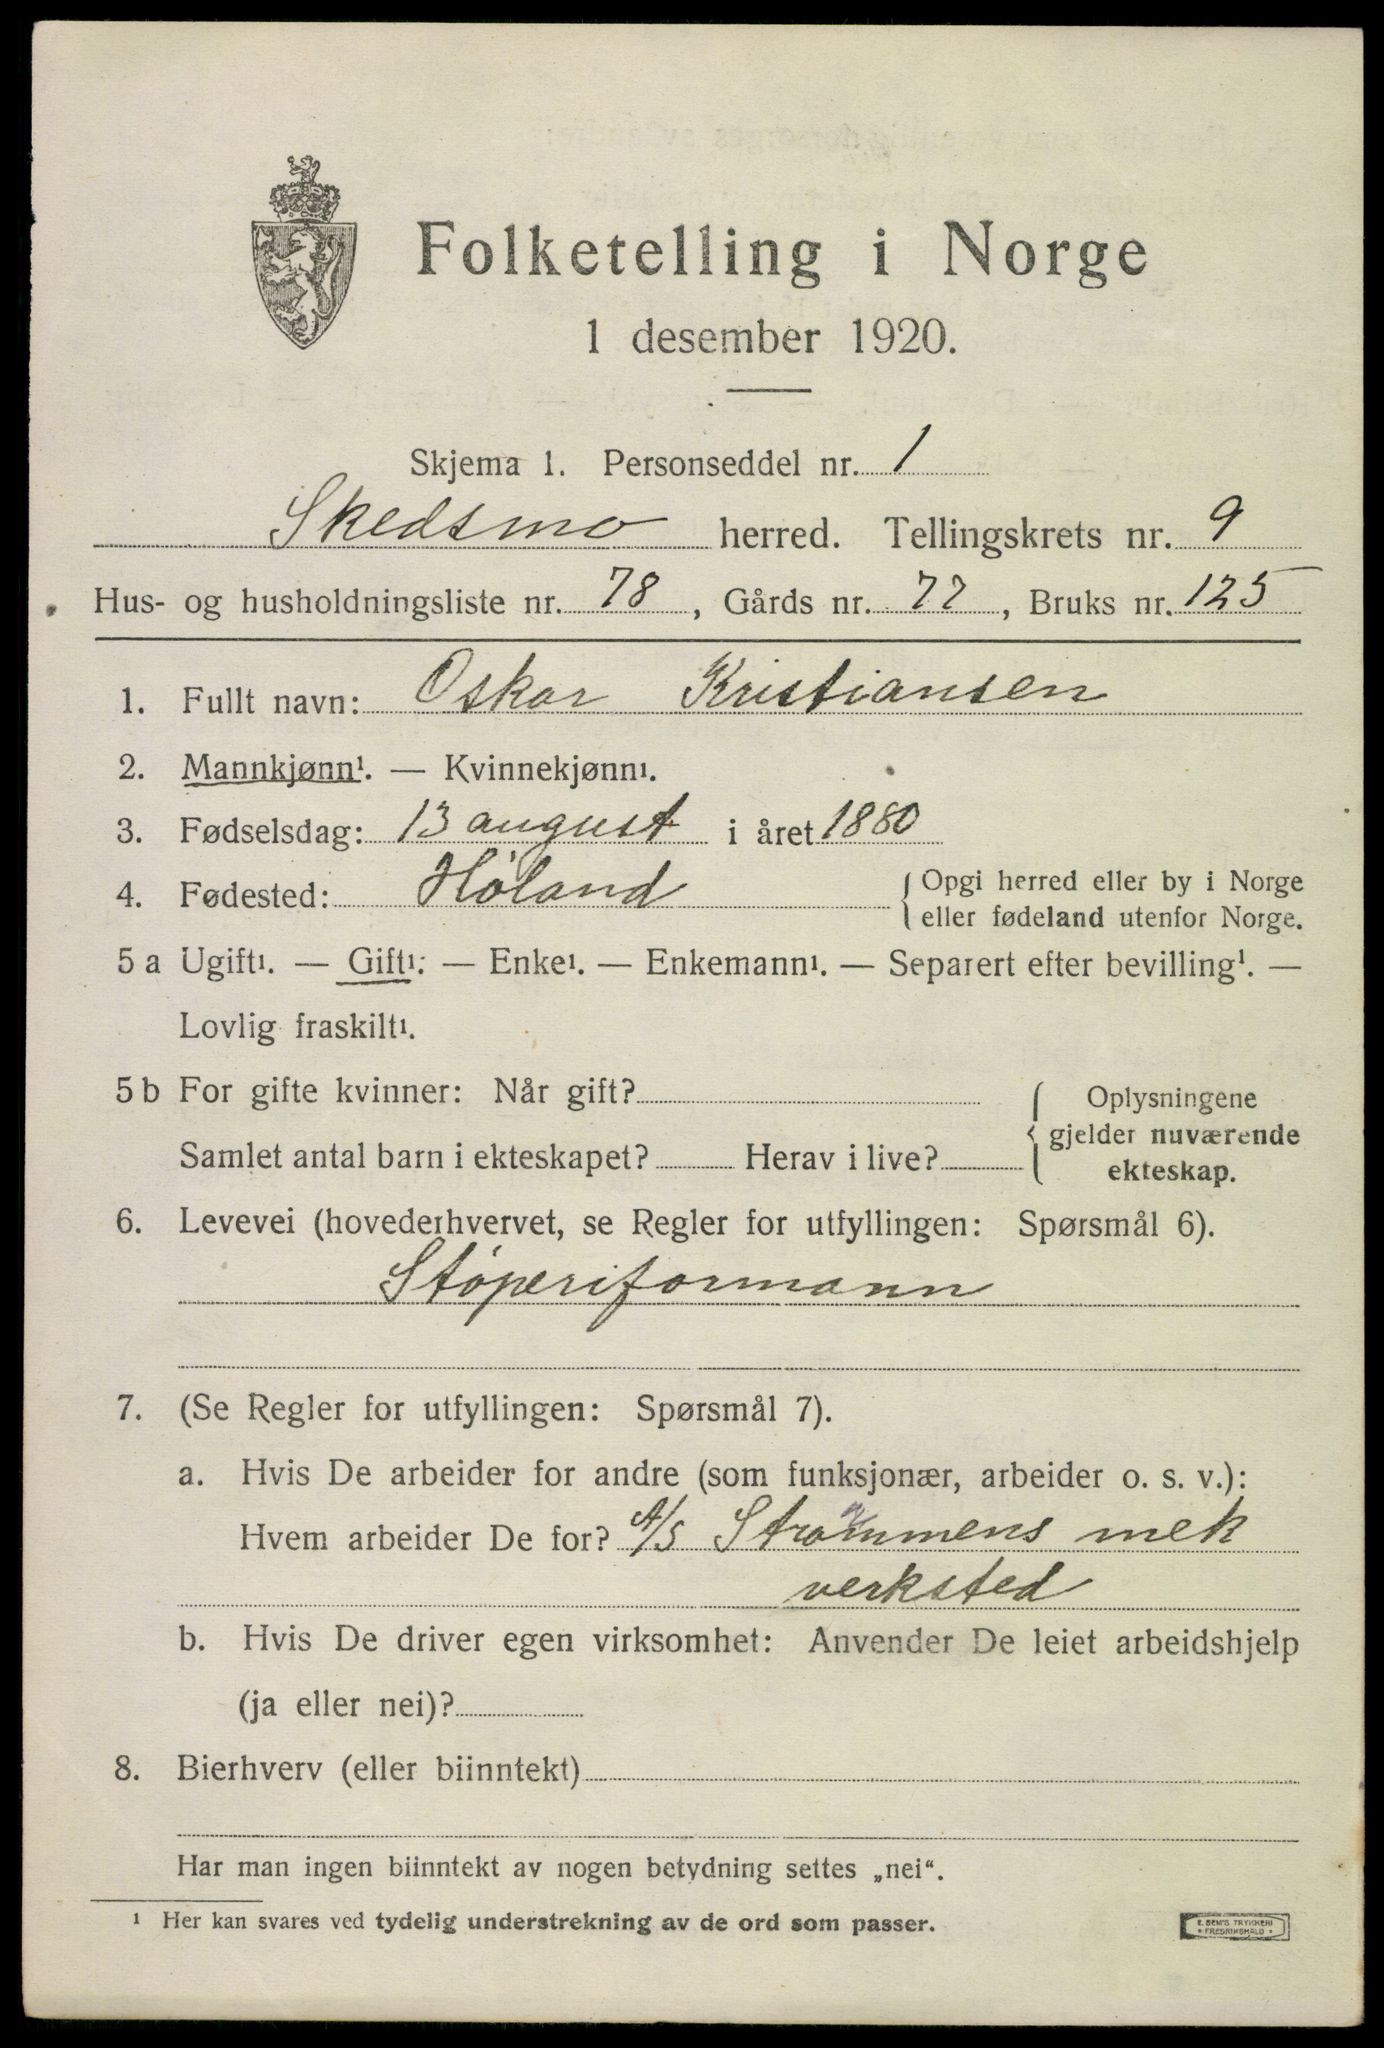 Folketelling i Norge
1 desember 1920.
Skjema 1. Personseddel nr. 1
Skedsmo herred. Tellingskrets nr. 9
Hus- og husholdningsliste nr. 78, Gårds nr. 77, Bruks nr. 125
1. Fullt navn: Oskar Kristiansen
2. Mannkjønn¹. — Kvinnekjønn¹.
3. Fødselsdag: 13 august i året 1880
4. Fødested: Høland
Opgi herred eller by i Norge
eller fødeland utenfor Norge.
5 a Ugift¹. — Gift¹. — Enke¹. — Enkemann¹. — Separert efter bevilling¹. —
Lovlig fraskilt¹.
5 b For gifte kvinner: Når gift?
Samlet antal barn i ekteskapet? Herav i live?
Oplysningene
gjelder nuværende
ekteskap.
6. Levevei (hovederhvervet, se Regler for utfyllingen: Spørsmål 6).
Støperiformann
7. (Se Regler for utfyllingen: Spørsmål 7).
a. Hvis De arbeider for andre (som funksjonær, arbeider o. s. v.):
Hvem arbeider De for? A/S Strømmens mek
verksted
b. Hvis De driver egen virksomhet: Anvender De leiet arbeidshjelp
(ja eller nei)?
8. Bierhverv (eller biinntekt)
Har man ingen biinntekt av nogen betydning settes „nei“.
¹ Her kan svares ved tydelig understrekning av de ord som passer.
E. SEM'S TRYKKERI
• FREDRIKSHALD •